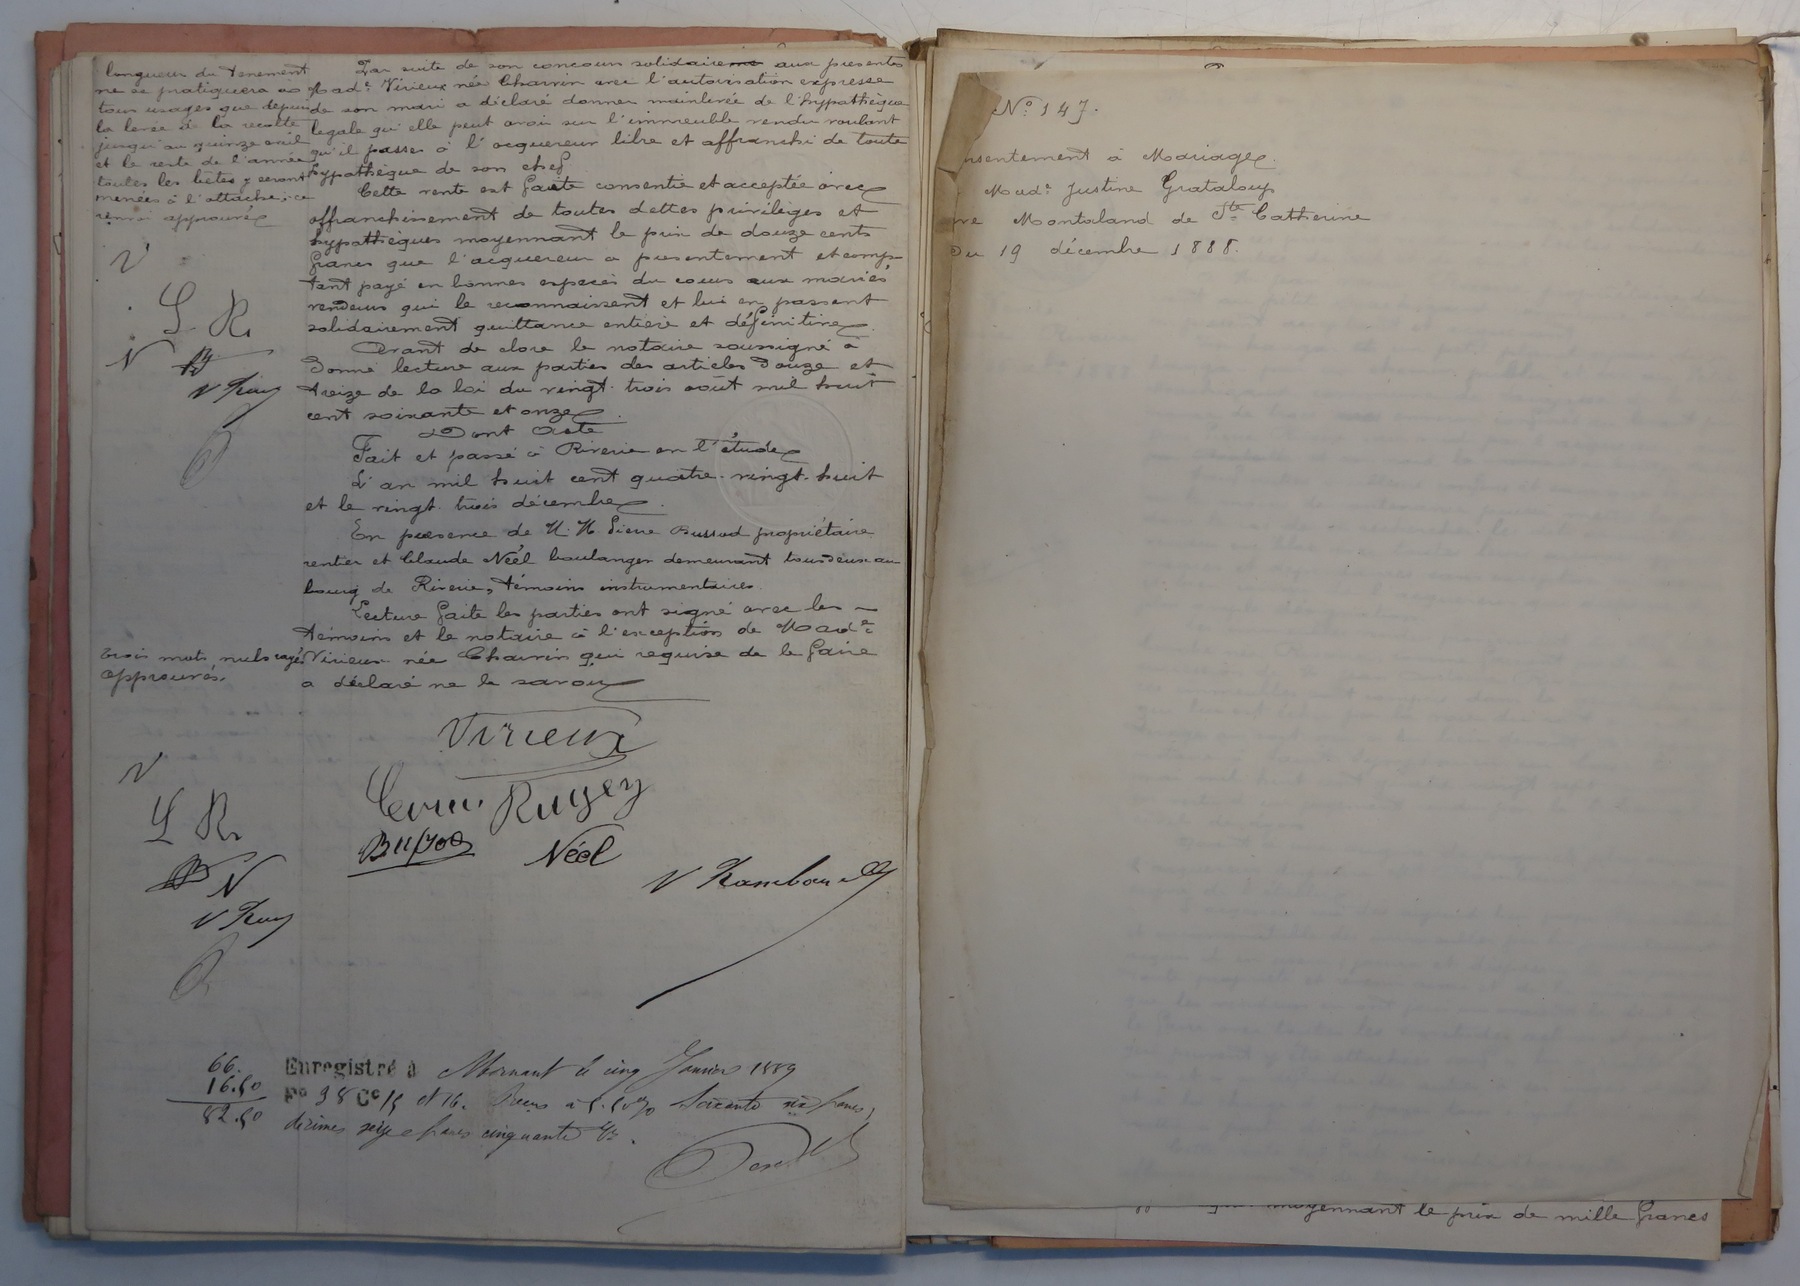 longueur du tenement
ne se pratiquera
tous usages que depuis
la levée de la recolte
jusqu'au quinze avril
et le reste de l'année
toutes les bêtes y seront
menées à l'attache, ce
renvoi approuvé
V
L R.
N
V Ram
trois mots nuls rayés
approuvés.
V
L R.
N
V Ram
Par suite de son concours solidaire aux presentes
Made Virieux née Charvin avec l'autorisation expresse
de son mari a déclaré donner mainlevée de l'hypothèque
legale qu'elle peut avoir sur l'immeuble vendu voulant
qu'il passe à l'acquereur libre et affranchi de toute
hypothèque de son chef
Cette vente est faite consentie et acceptée avec
affranchissement de toutes dettes privilèges et
hypothèques moyennant le prix de douze cents
francs que l'acquereur a presentement et comp-
tant payé en bonnes espèces du cours aux mariés
vendeurs qui le reconnaissent et lui en passent
solidairement quittance entière et définitive.
Avant de clore le notaire soussigné a
donné lecture aux parties des articles douze et
treize de la loi du vingt-trois août mil huit
cent soixante et onze.
Dont Acte
Fait et passé à Riverie en l'étude
L'an mil huit cent quatre-vingt-huit
et le vingt-trois décembre.
En presence de M. M. Pierre Bussod propriétaire
rentier et Claude Néel boulanger demeurant tous deux au
bourg de Riverie, témoins instrumentaires.
Lecture faite les parties ont signé avec les
témoins et le notaire à l'exception de Made
Virieux née Charvin qui requise de le faire
a déclaré ne le savoir
Virieux
Rugey
Bussod Néel
V Rambaud
66.
16.50
82.50
Enregistré à Mornant le cinq Janvier 1889
F° 98 C° 15 et 16. Reçu à 5.50% Soixante six francs,
décimes seize francs cinquante c.
N° 147.
nsentement à Mariage
Made Justine Grataloup
ve Montaland de Ste Catherine
Du 19 décembre 1888.
moyennant le prix de mille francs